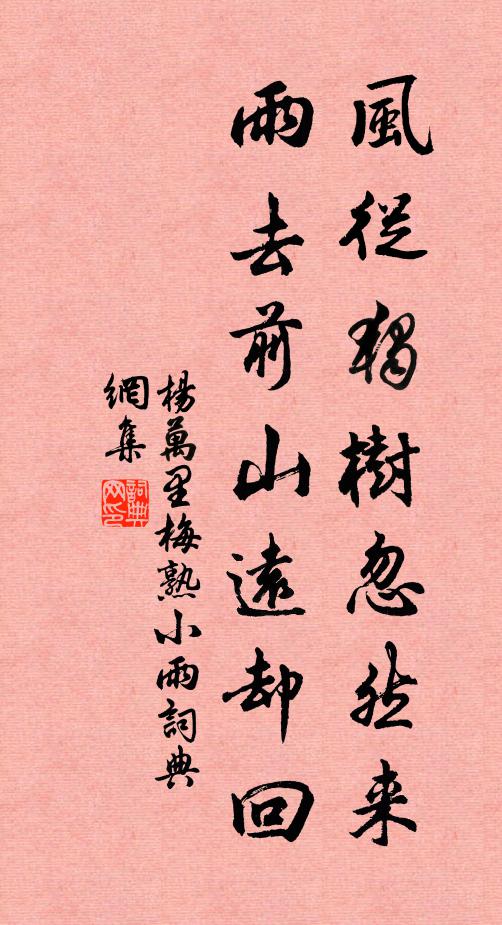 風從獨樹忽然来
雨去前山遠却回
楊萬里梅熟小雨詞典
網集
詞典網印